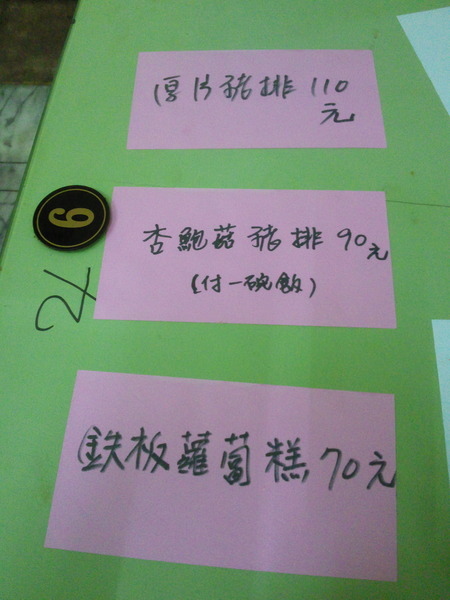 厚片豬排110
元
6
杏鮑菇豬排90元
(付一碗飯)
鉄板蘿蔔糕70元